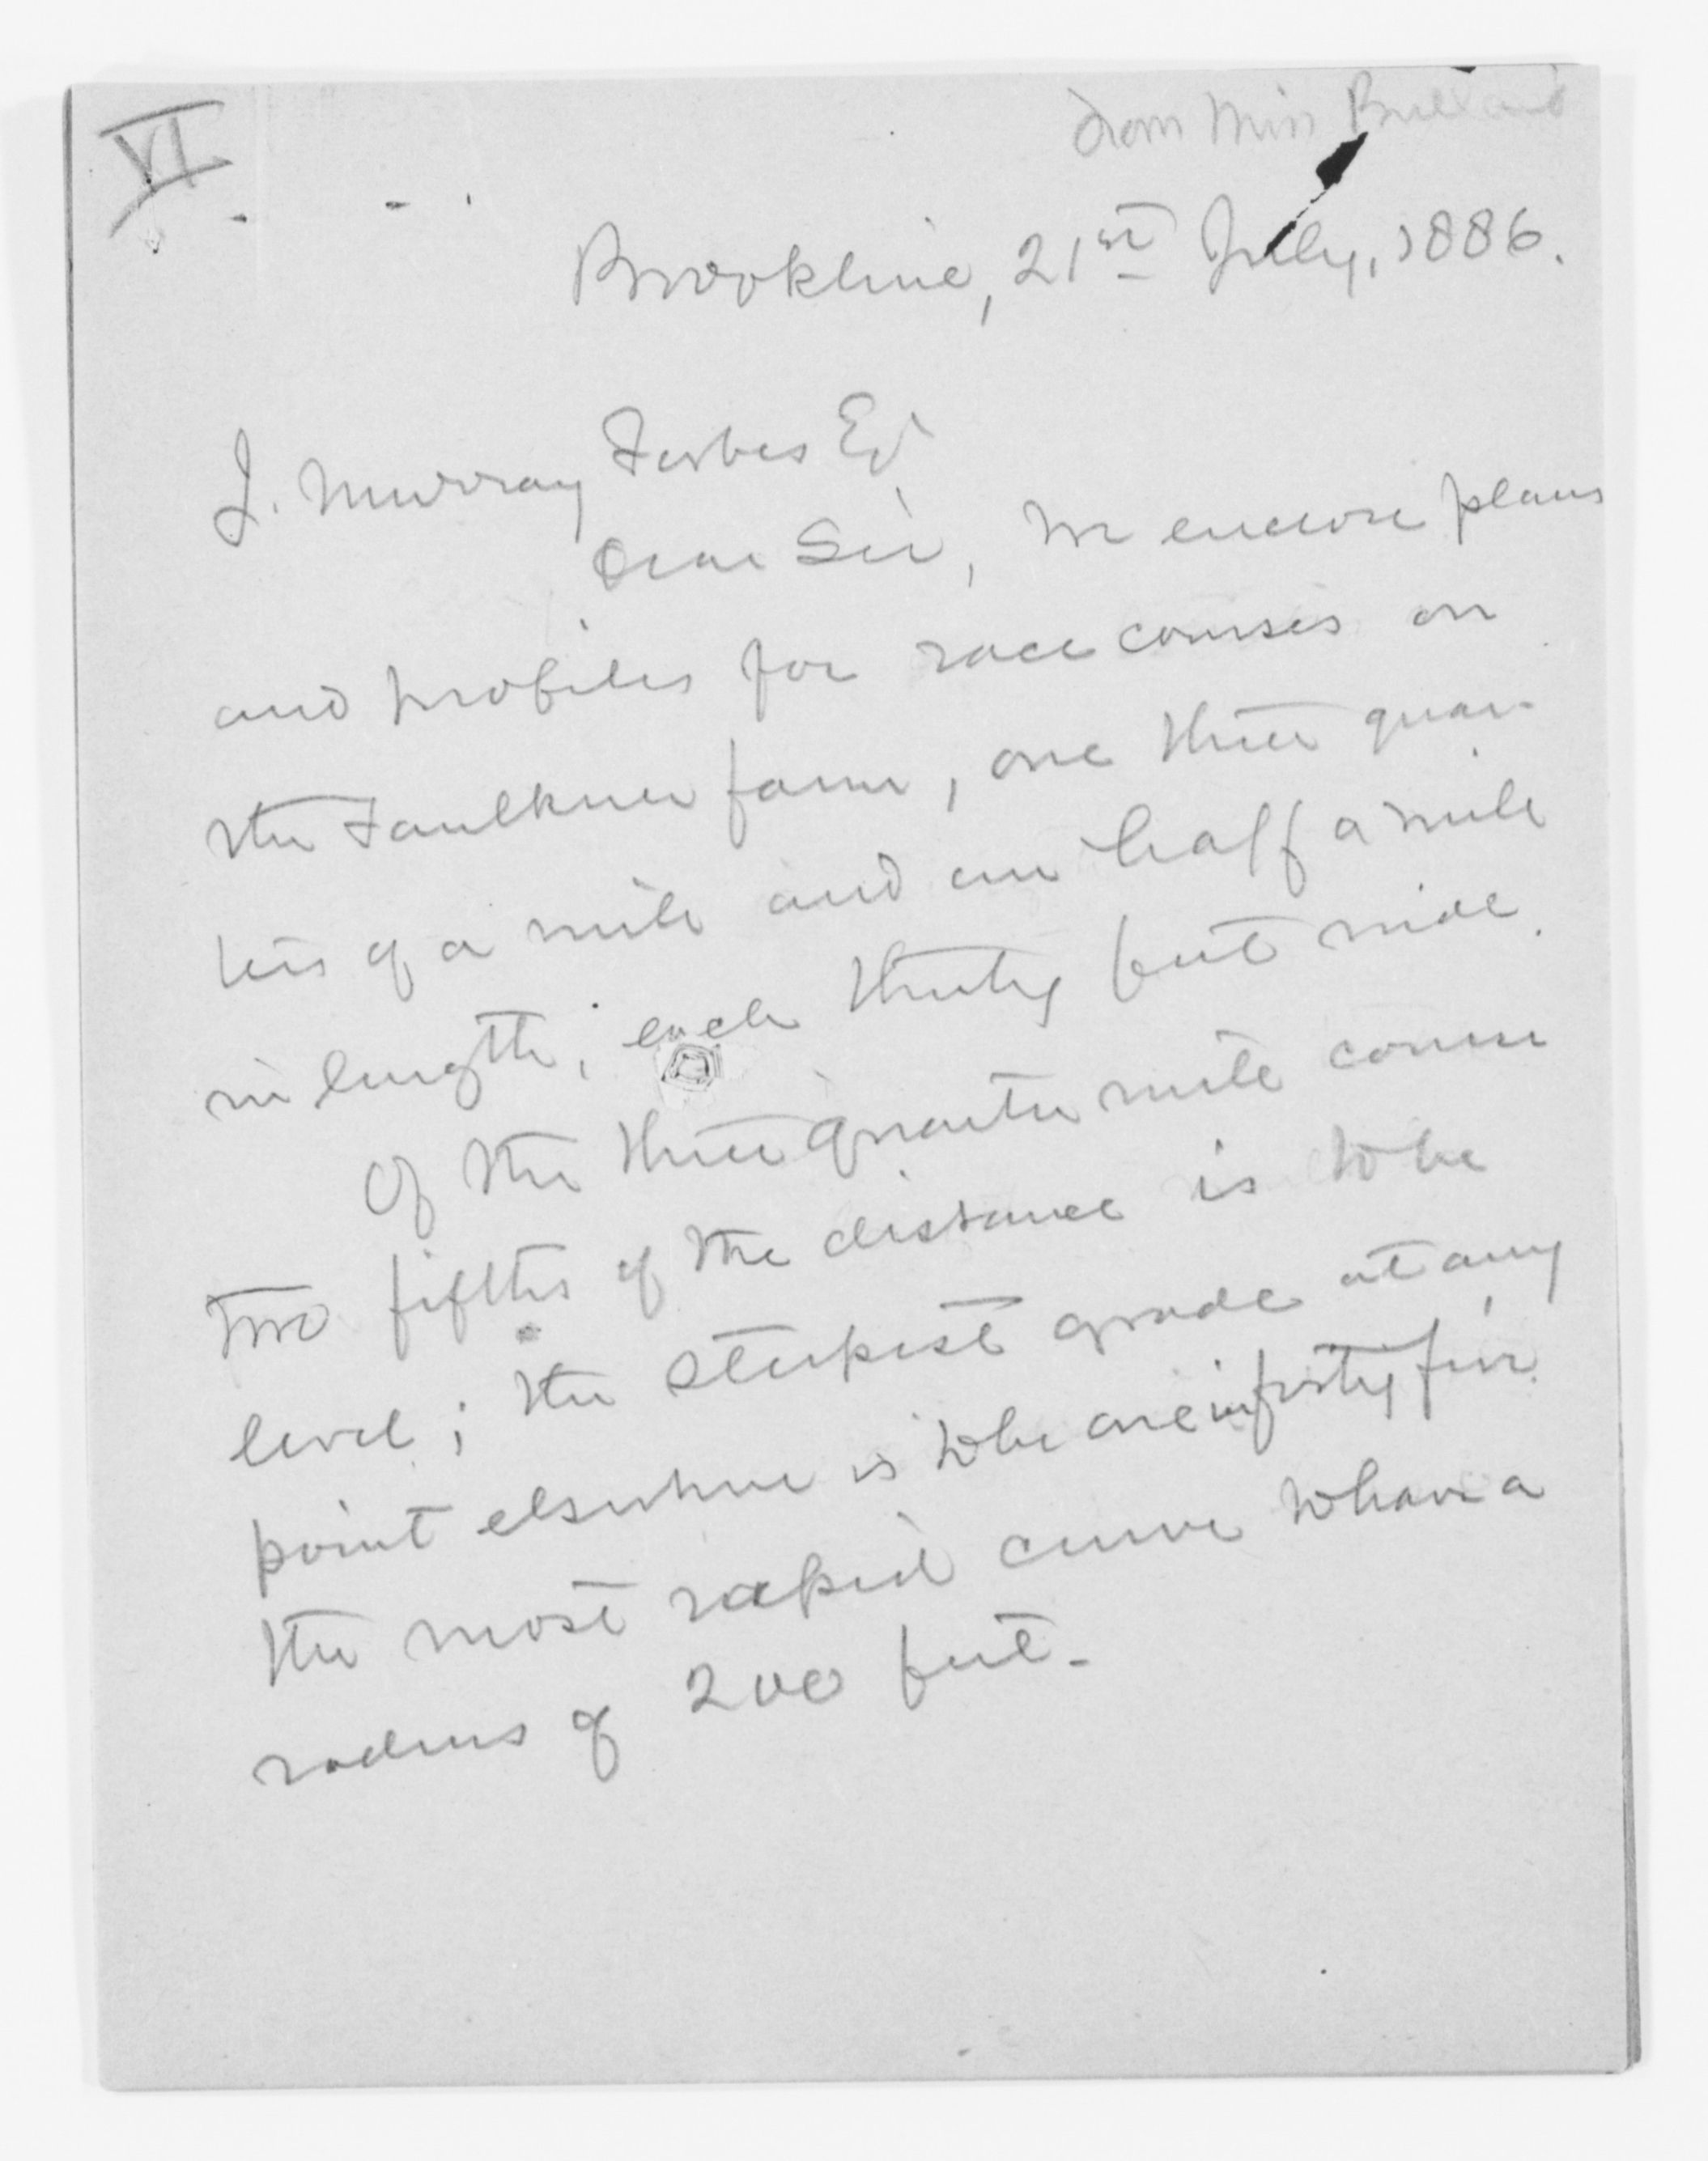 VI
from Miss Bullard
Brookline, 21st July, 1886.
J. Murray Forbes Esq
Dear Sir, We enclose plans
and profiles for race courses on
the Faulkner farm, one three quar-
ters of a mile and one half a mile
in length; each thirty feet wide.
Of the three quarter mile course
two fifths of the distance is to be
level; the steepest grade at any
point elsewhere is to be one in forty five.
the most rapid curve to have a
radius of 200 feet.